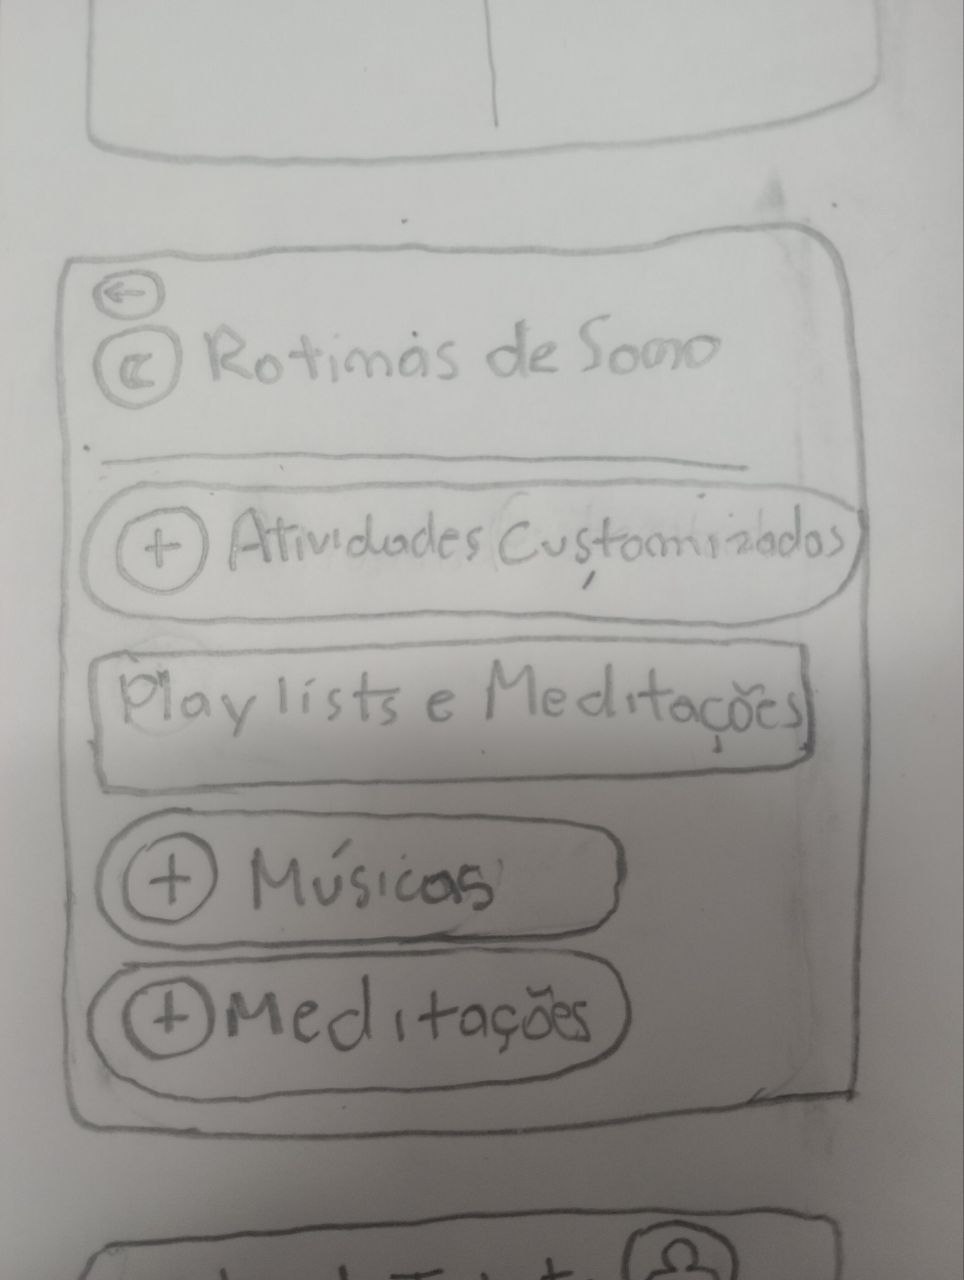 Rotinas de Sono
+ Atividades Customizadas
Playlists e Meditações
+ Músicas
+ Meditações